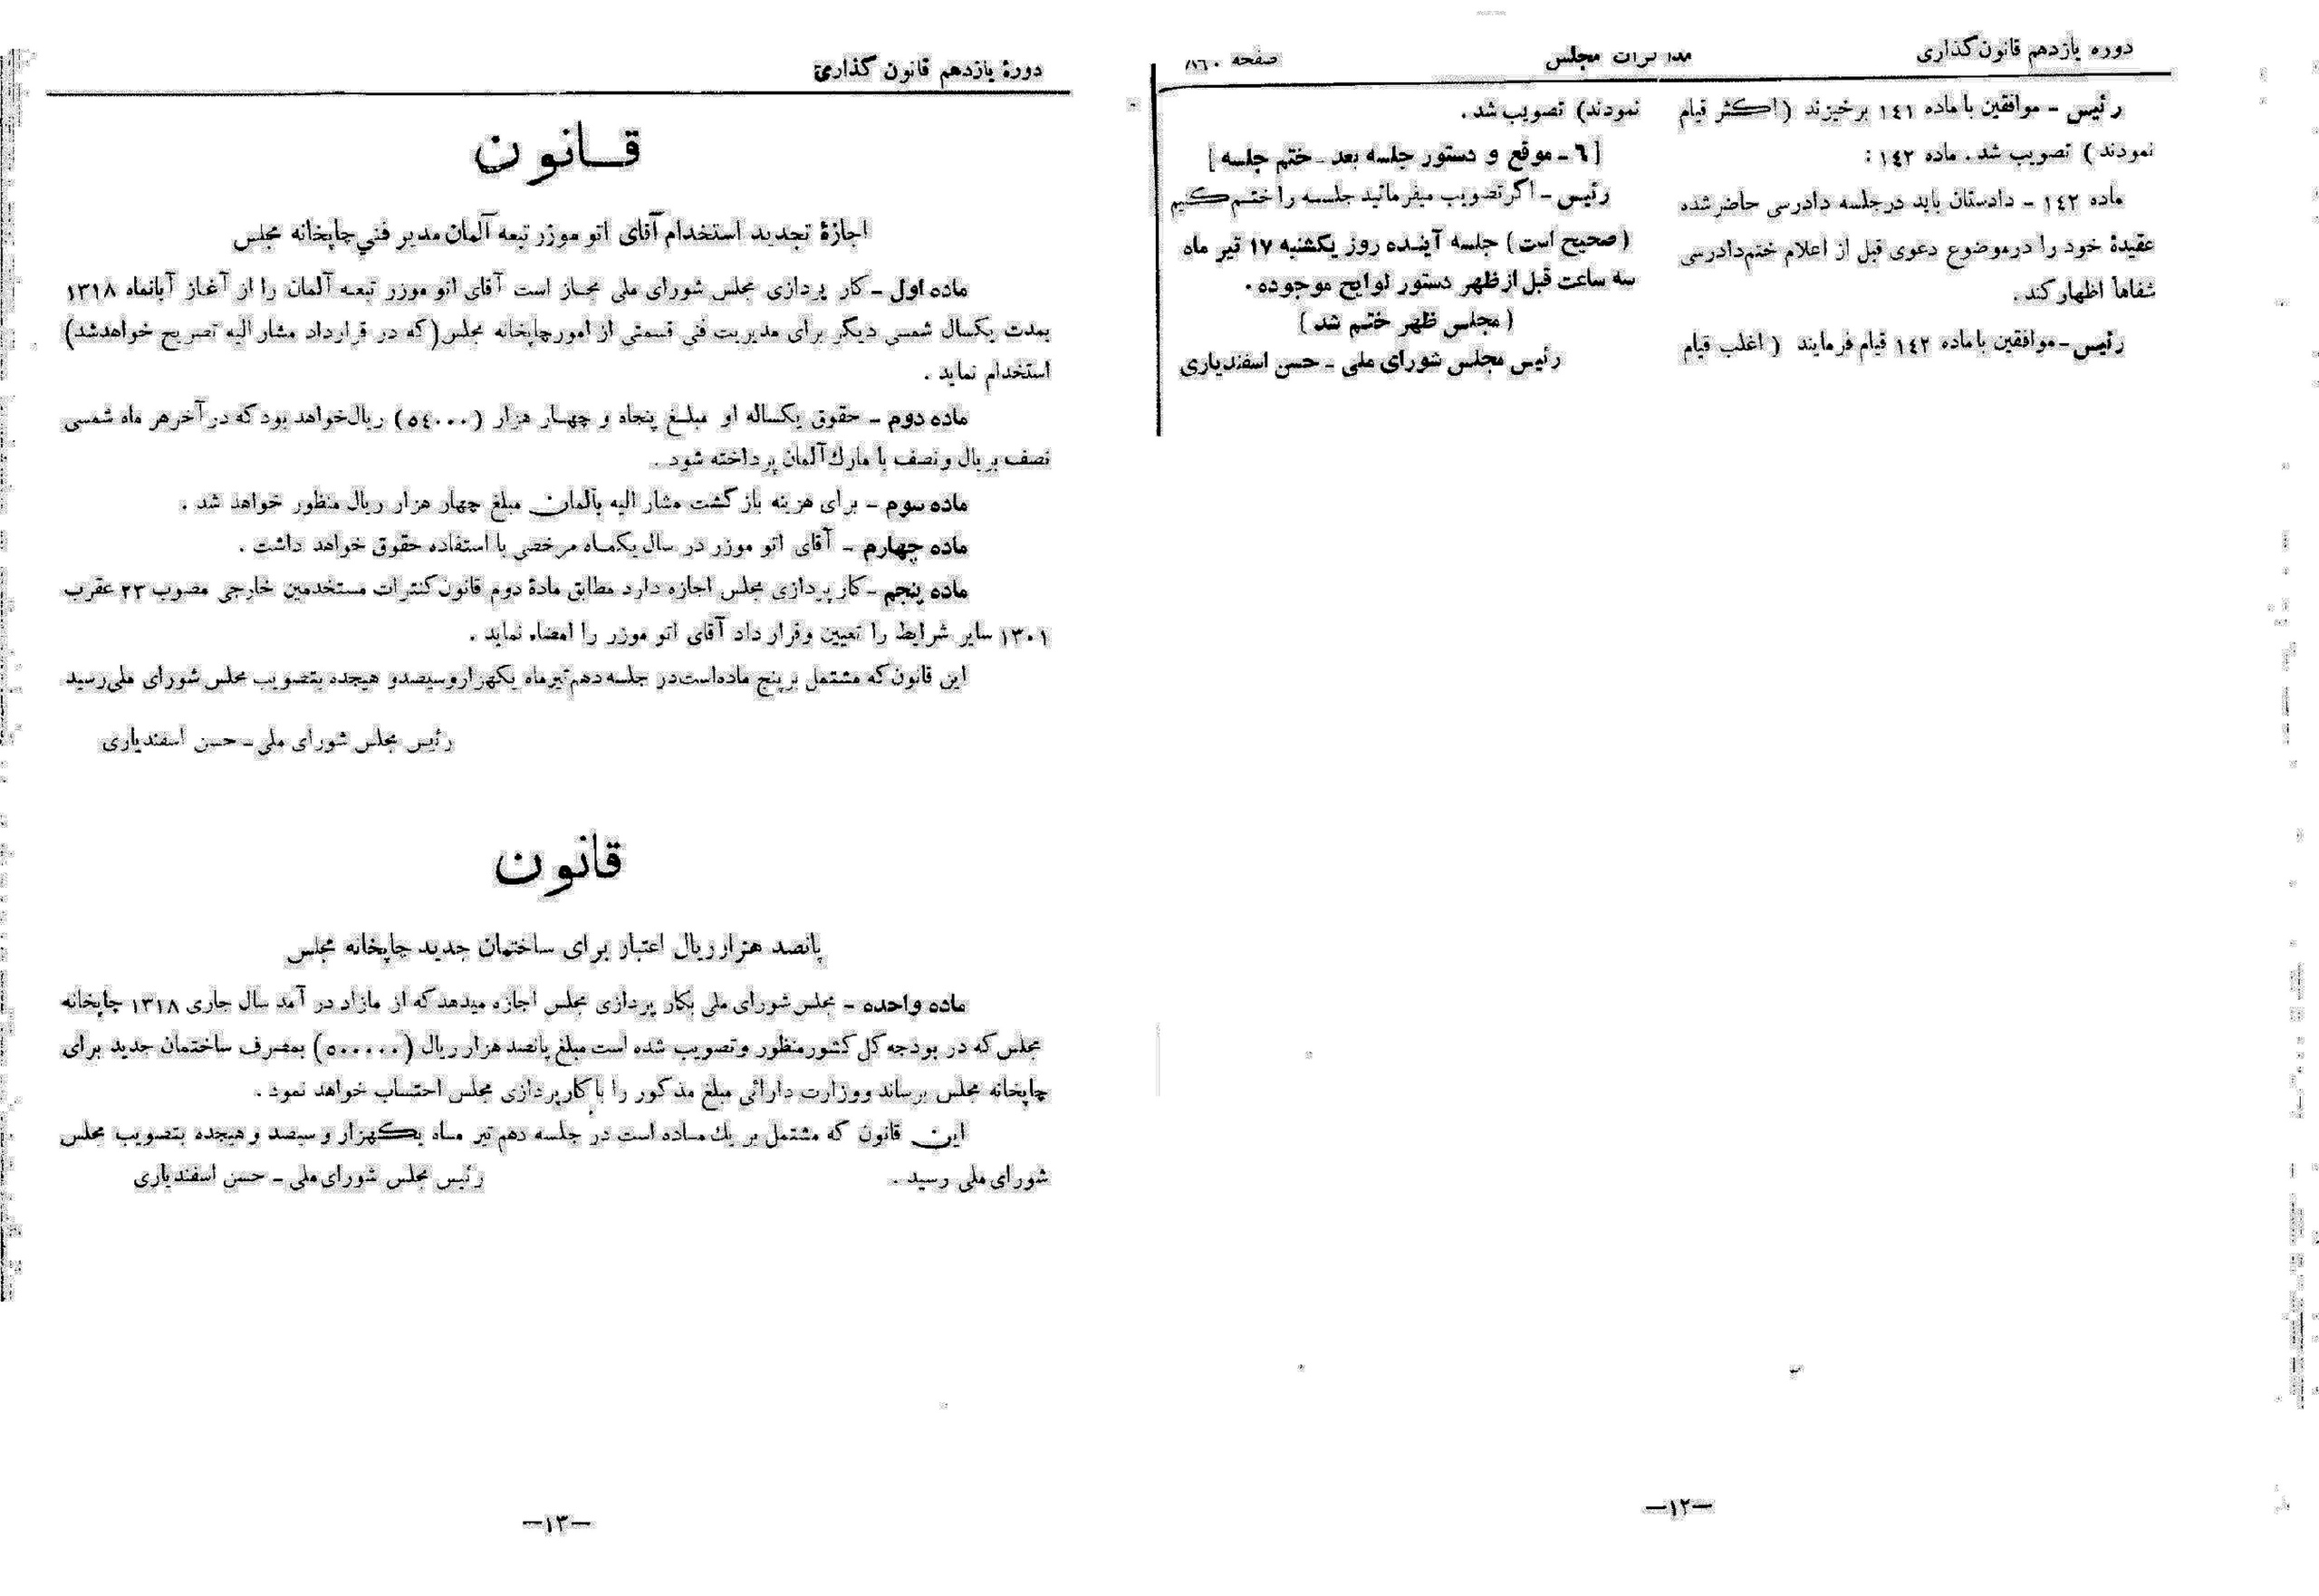 دوره یازدهم قانون‌گذاری
مذاکرات مجلس
صفحه ٨٦٠
رئیس - موافقین با ماده ١٤١ برخیزند (اکثر قیام
نمودند) تصویب شد. ماده ١٤٢:
ماده ١٤٢ - دادستان باید در جلسه دادرسی حاضر شده
عقیدهٔ خود را در موضوع دعوی قبل از اعلام ختم دادرسی
شفاهاً اظهار کند.
رئیس - موافقین با ماده ١٤٢ قیام فرمایند (اغلب قیام
نمودند) تصویب شد.
[٦ - موقع و دستور جلسه بعد - ختم جلسه]
رئیس - اگر تصویب میفرمائید جلسه را ختم کنیم
(صحیح است) جلسه آینده روز یکشنبه ١٧ تیر ماه
سه ساعت قبل از ظهر دستور لوایح موجوده.
(مجلس ظهر ختم شد)
رئیس مجلس شورای ملی - حسن اسفندیاری
-١٢-
دورهٔ یازدهم قانون گذاری
قانون
اجازهٔ تجدید استخدام آقای اتو موزر تبعه آلمان مدیر فنی چاپخانه مجلس
ماده اول - کار پردازی مجلس شورای ملی مجاز است آقای اتو موزر تبعه آلمان را از آغاز آبانماه ١٣١٨
بمدت یکسال شمسی دیگر برای مدیریت فنی قسمتی از امور چاپخانه مجلس (که در قرارداد مشار الیه تصریح خواهد شد)
استخدام نماید.
ماده دوم - حقوق یکساله او مبلغ پنجاه و چهار هزار (٥٤٠٠٠) ریال خواهد بود که در آخر هر ماه شمسی
نصف بریال و نصف با مارك آلمان پرداخته شود.
ماده سوم - برای هزینه باز گشت مشار الیه بآلمان مبلغ چهار هزار ریال منظور خواهد شد.
ماده چهارم - آقای اتو موزر در سال یکماه مرخصی با استفاده حقوق خواهد داشت.
ماده پنجم - کار پردازی مجلس اجازه دارد مطابق مادهٔ دوم قانون کنترات مستخدمین خارجی مصوب ٢٣ عقرب
١٣٠١ سایر شرایط را تعیین و قرار داد آقای اتو موزر را امضاء نماید.
این قانون که مشتمل بر پنج ماده است در جلسه دهم تیرماه یکهزار و سیصد و هیجده بتصویب مجلس شورای ملی رسید
رئیس مجلس شورای ملی - حسن اسفندیاری
قانون
پانصد هزار ریال اعتبار برای ساختمان جدید چاپخانه مجلس
ماده واحده - مجلس شورای ملی بکار پردازی مجلس اجازه میدهد که از مازاد در آمد سال جاری ١٣١٨ چاپخانه
مجلس که در بودجه کل کشور منظور و تصویب شده است مبلغ پانصد هزار ریال (٥٠٠٠٠٠) بمصرف ساختمان جدید برای
چاپخانه مجلس برساند و وزارت دارائی مبلغ مذکور را با کار پردازی مجلس احتساب خواهد نمود.
این قانون که مشتمل بر یك ماده است در جلسه دهم تیر ماه یکهزار و سیصد و هیجده بتصویب مجلس
شورای ملی رسید. رئیس مجلس شورای ملی - حسن اسفندیاری
-١٣-